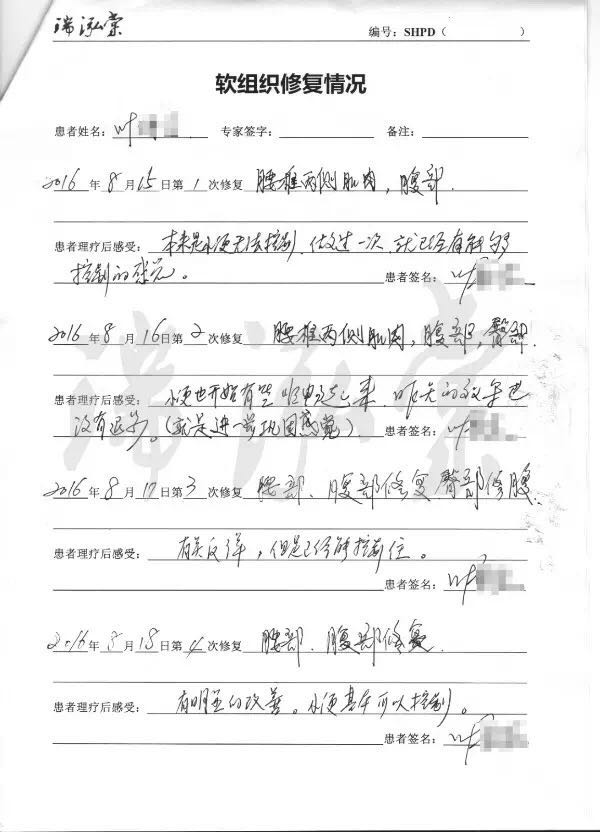 瑞泓棠
编号：SHPD（ ）
软组织修复情况
患者姓名： 叶 专家签字： 备注：
2016 年 8 月 15 日第 1 次修复 腰椎两侧肌肉，腹部.
患者理疗后感受： 本来是小便无法控制，做过一次，就已经有能够
控制的感觉。 患者签名： 叶
2016 年 8 月 16 日第 2 次修复 腰椎两侧肌肉，腹部，臀部.
患者理疗后感受： 小便也开始有些 起来，昨天的效果也
没有退步。（就是进一步巩固感觉） 患者签名： 叶
2016 年 8 月 17 日第 3 次修复 腰部、腹部修复 臀部修腹.
患者理疗后感受： 有点反弹，但是已经能控制住。
患者签名： 叶
2016 年 8 月 18 日第 4 次修复 腰部、腹部修复.
患者理疗后感受： 有明显的改善。小便基本可以控制。
患者签名： 叶
瑞泓棠